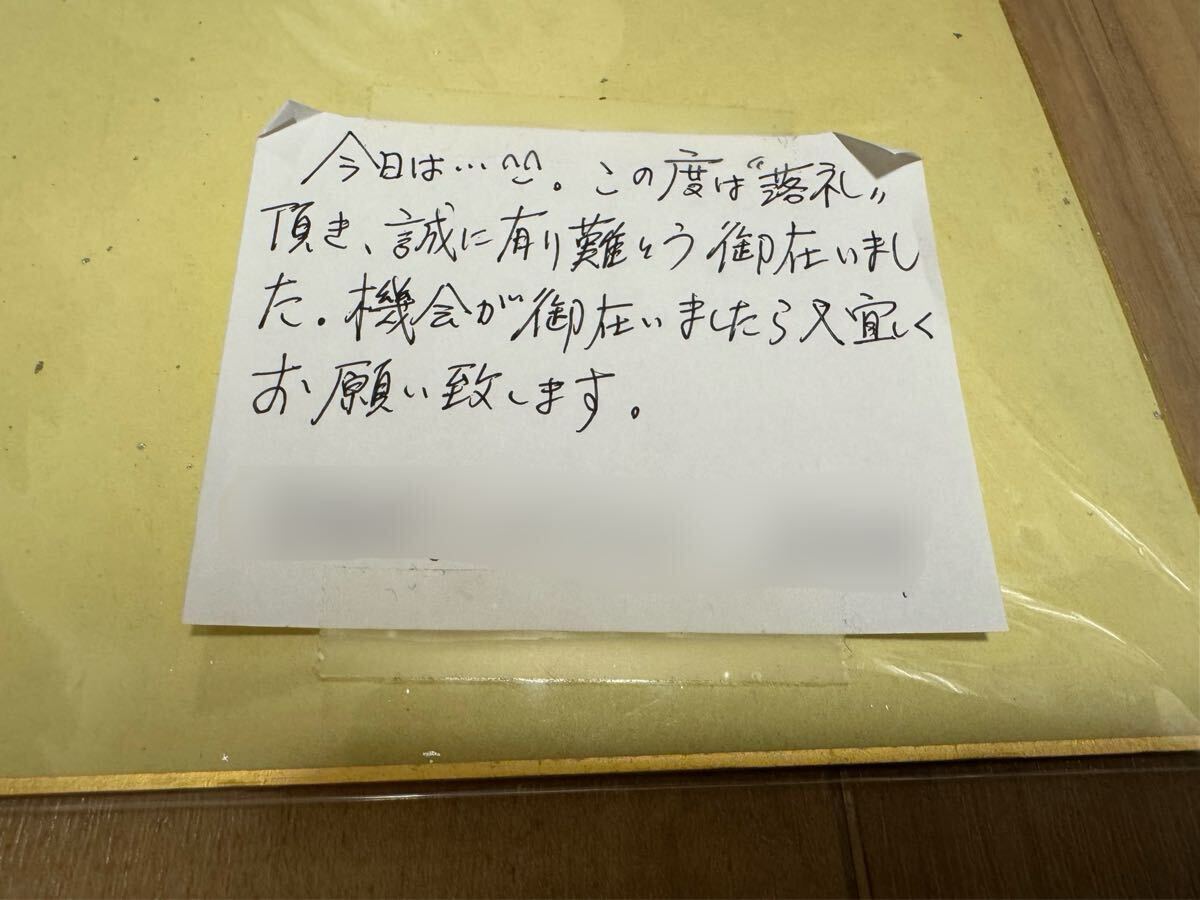 今日は…^^。この度は“落札”
頂き、誠に有り難とう御在いまし
た。機会が御在いましたら又宜しく
お願い致します。